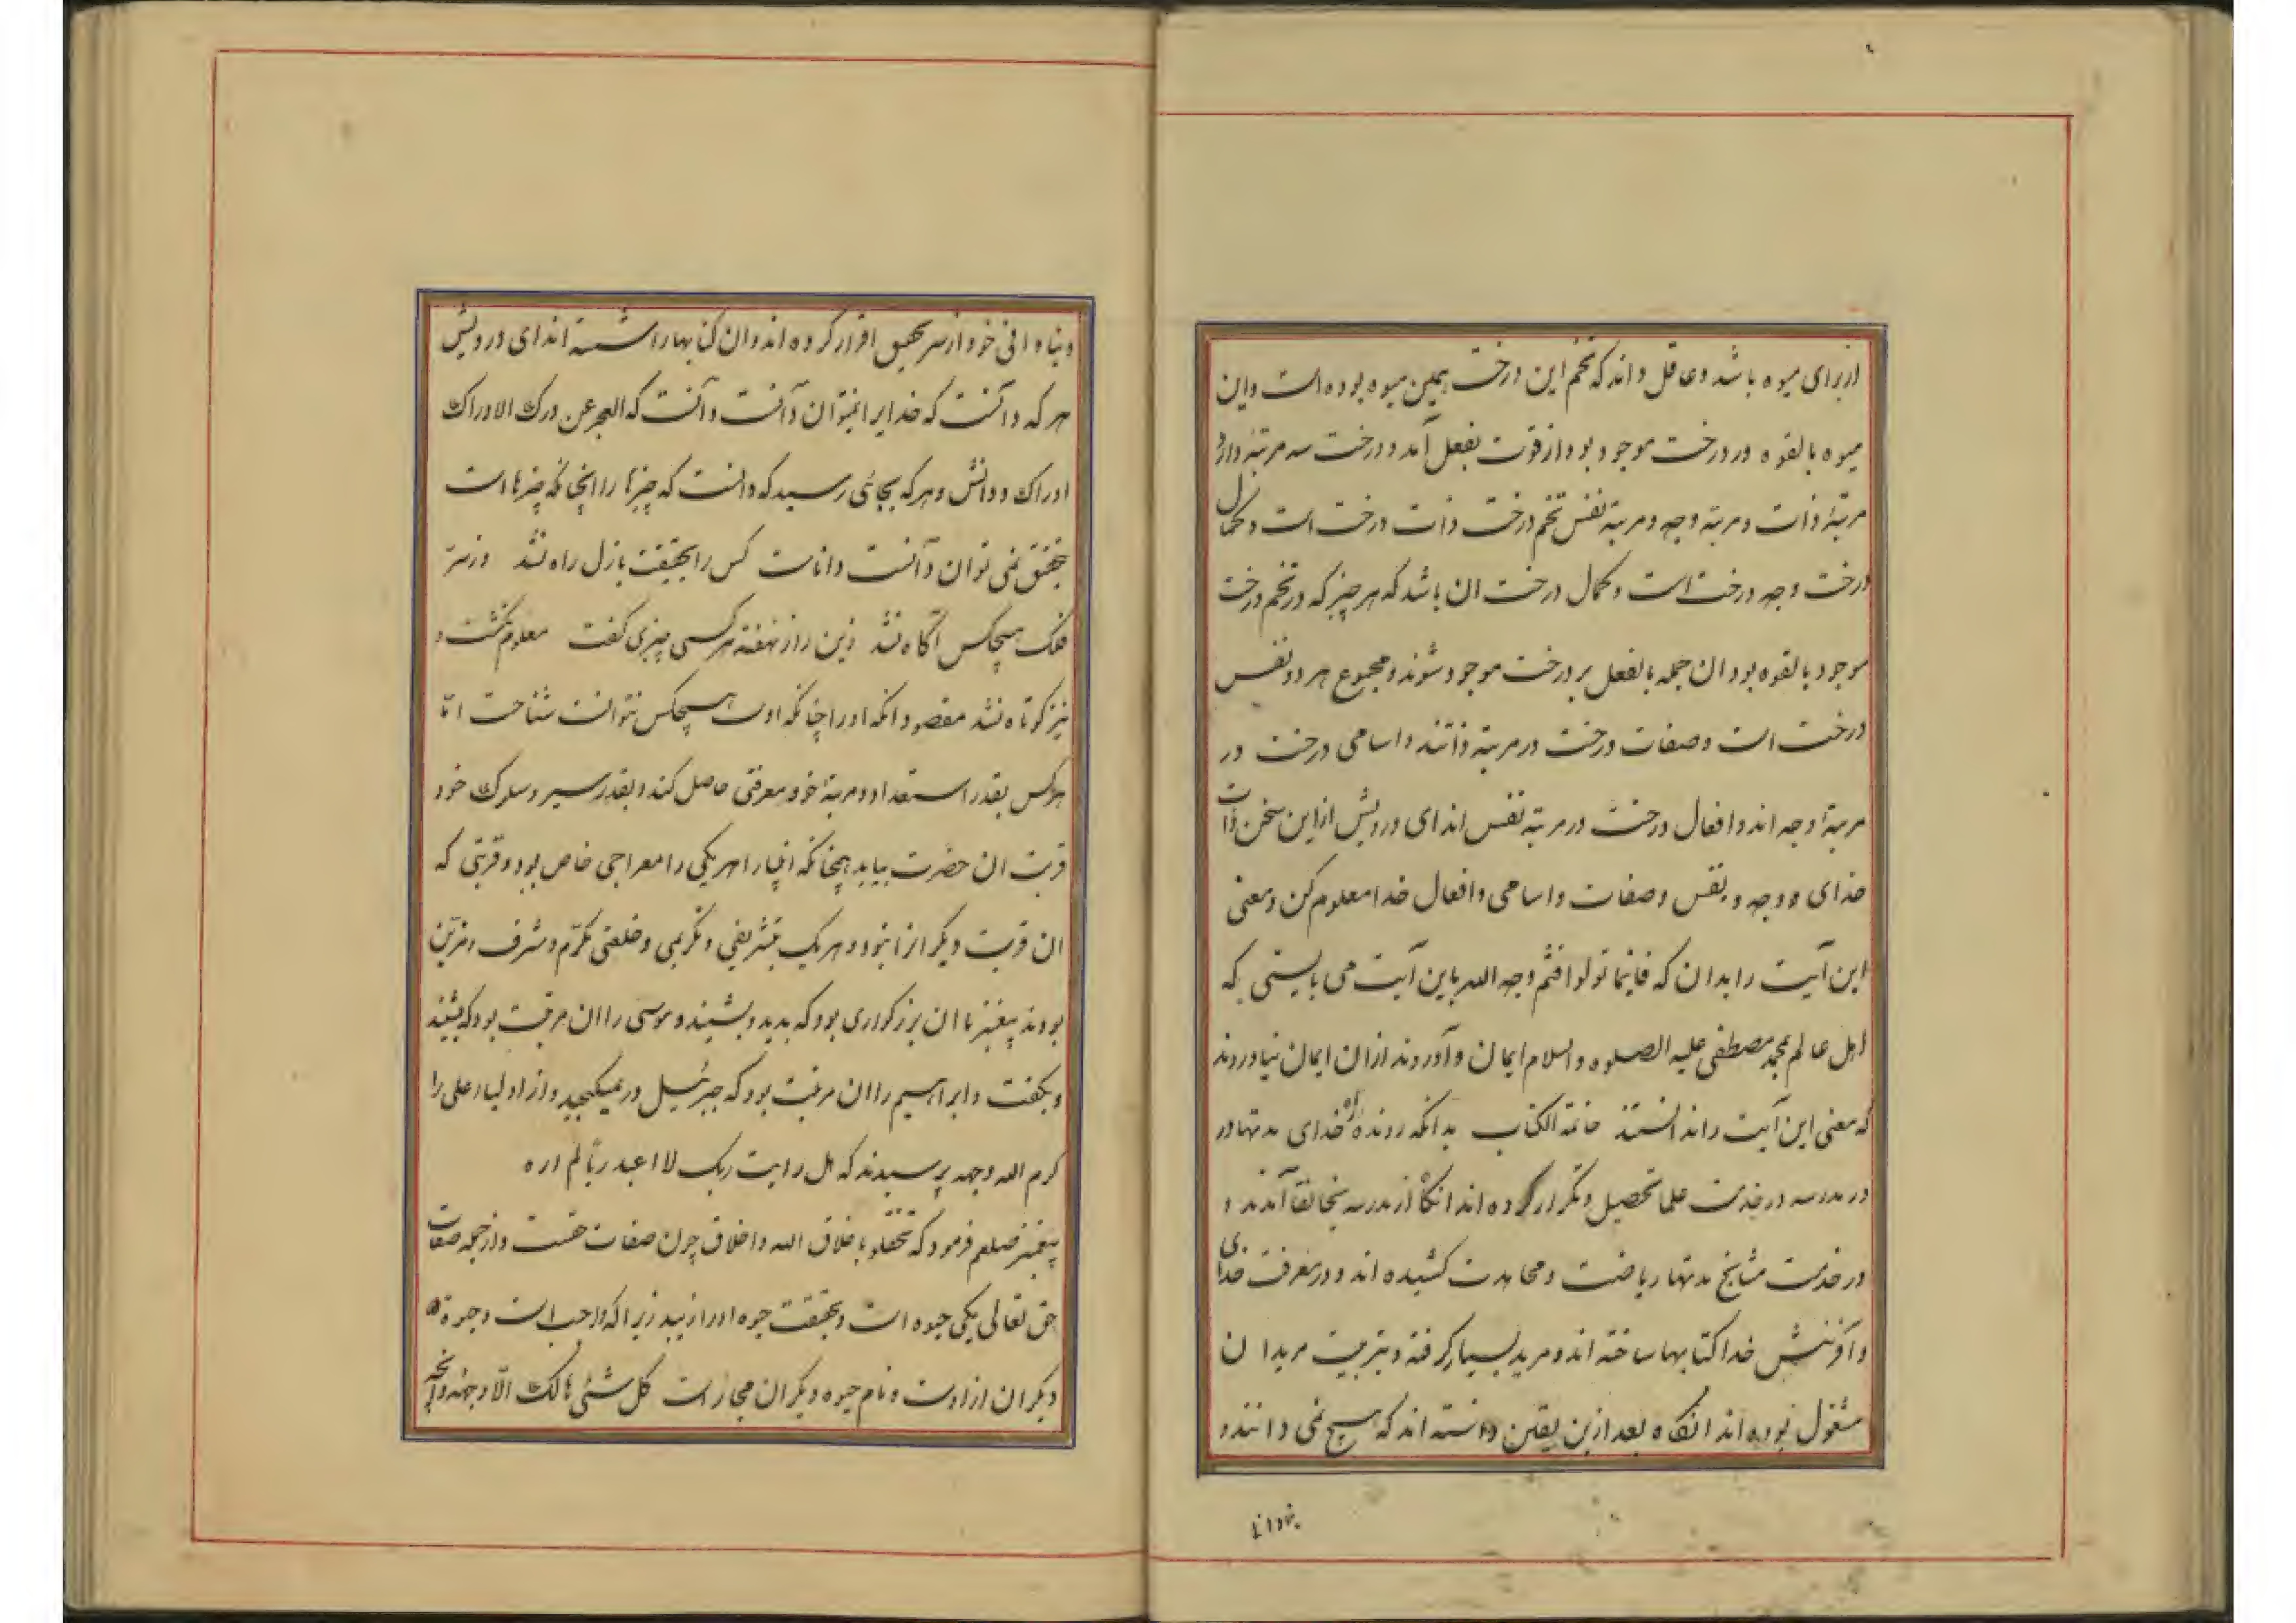 از برای میوه باشد و عاقل داند که تخم این درخت همین میوه بوده است و این
میوه بالقوه در درخت موجود بود از قوت بفعل آمد و درخت سه مرتبه دارد
مرتبهٔ ذات و مرتبهٔ وجه و مرتبهٔ نفس تخم درخت ذات درخت است و کمال
درخت وجه درخت است و کمال درخت ان باشد که هر چیز که در تخم درخت
موجود بالقوه بود ان جمله بالفعل بر درخت موجود شوند و مجموع هر دو نفس
درخت است و صفات درخت در مرتبهٔ ذاتند و اسامی درخت در
مرتبهٔ وجه اند و افعال درخت در مرتبهٔ نفس اند ای درویش از این سخن ذات
خدای و وجه و نفس و صفات و اسامی و افعال خدا معلوم کن و معنی
این آیت را بدان که فاینما تولوا فثم وجه الله باین آیت می بایستی که
اهل عالم بمحمد مصطفی علیه الصلوه والسلام ایمان آوردند ازان ایمان نیاوردند
که معنی این آیت را ندانستند خاتمة الکتاب بدانکه رونده راه خدای مدتها در
در مدرسه در خدمت علما تحصیل و تکرار کرده اند انگاه از مدرسه بخانقا آمدند و
در خدمت مشایخ مدتها ریاضت و مجاهدت کشیده اند و در معرفت خدای
و آفرینش خدا کتابها ساخته اند و مرید بسیار گرفته و بتربیت مریدان
مشغول بوده اند انگاه بعد ازین یقین دانسته اند که هیچ نمی دانند و

و بنادانی خود از سر تحقیق اقرار کرده اند و ان کتابها را شسته اند ای درویش
هر که دانست که خدایرا نمیتوان دانست دانست که العجز عن درک الادراک
ادراک و دانش و هر که بجائی رسید که دانست که چیزها را انچنانکه چیزهااست
بتحقیق نمی توان دانست داناست کس را بحقیقت بازل راه نشد وز سر
فلک هیچکس آگاه نشد زین راز نهفته هر کسی چیزی گفت معلوم نگشت و
نیز کوتاه نشد مقصود انکه او را چنانکه اوست هیچکس نتوانست شناخت اما
هر کس بقدر استعداد و مرتبهٔ خود معرفتی حاصل کند و بقدر سیر و سلوک خود
قربت ان حضرت بیابد همچنانکه انبیا را هر یکی را معراجی خاص بود و قربتی که
ان قربت دیگر انرا نبود و هر یک بتشریفی و تکریمی و خلعتی مکرم و مشرف و مزین
بودند پیغمبر ما ان بزرگواری بود که بدید و بشنید و موسی را ان مرتبت بود که بشنید
و بگفت و ابراهیم را ان مرتبت بود که جبرئیل در نمیگنجید و از اولیا علی را
کرم الله وجهه پرسیدند که هل رایت ربک لا اعبد ربا لم اره
پیغمبر صلعم فرمود که تخلقوا باخلاق الله و اخلاق چون صفات حقست و از جمله صفات
حق تعالی یکی حیوه است و بحقیقت حیوه او را زیبد زیرا که واجب است و حیوة
دیگران از اوست و نام حیوه دیگران مجاز است کل شئی هالک الا وجهه و انچه